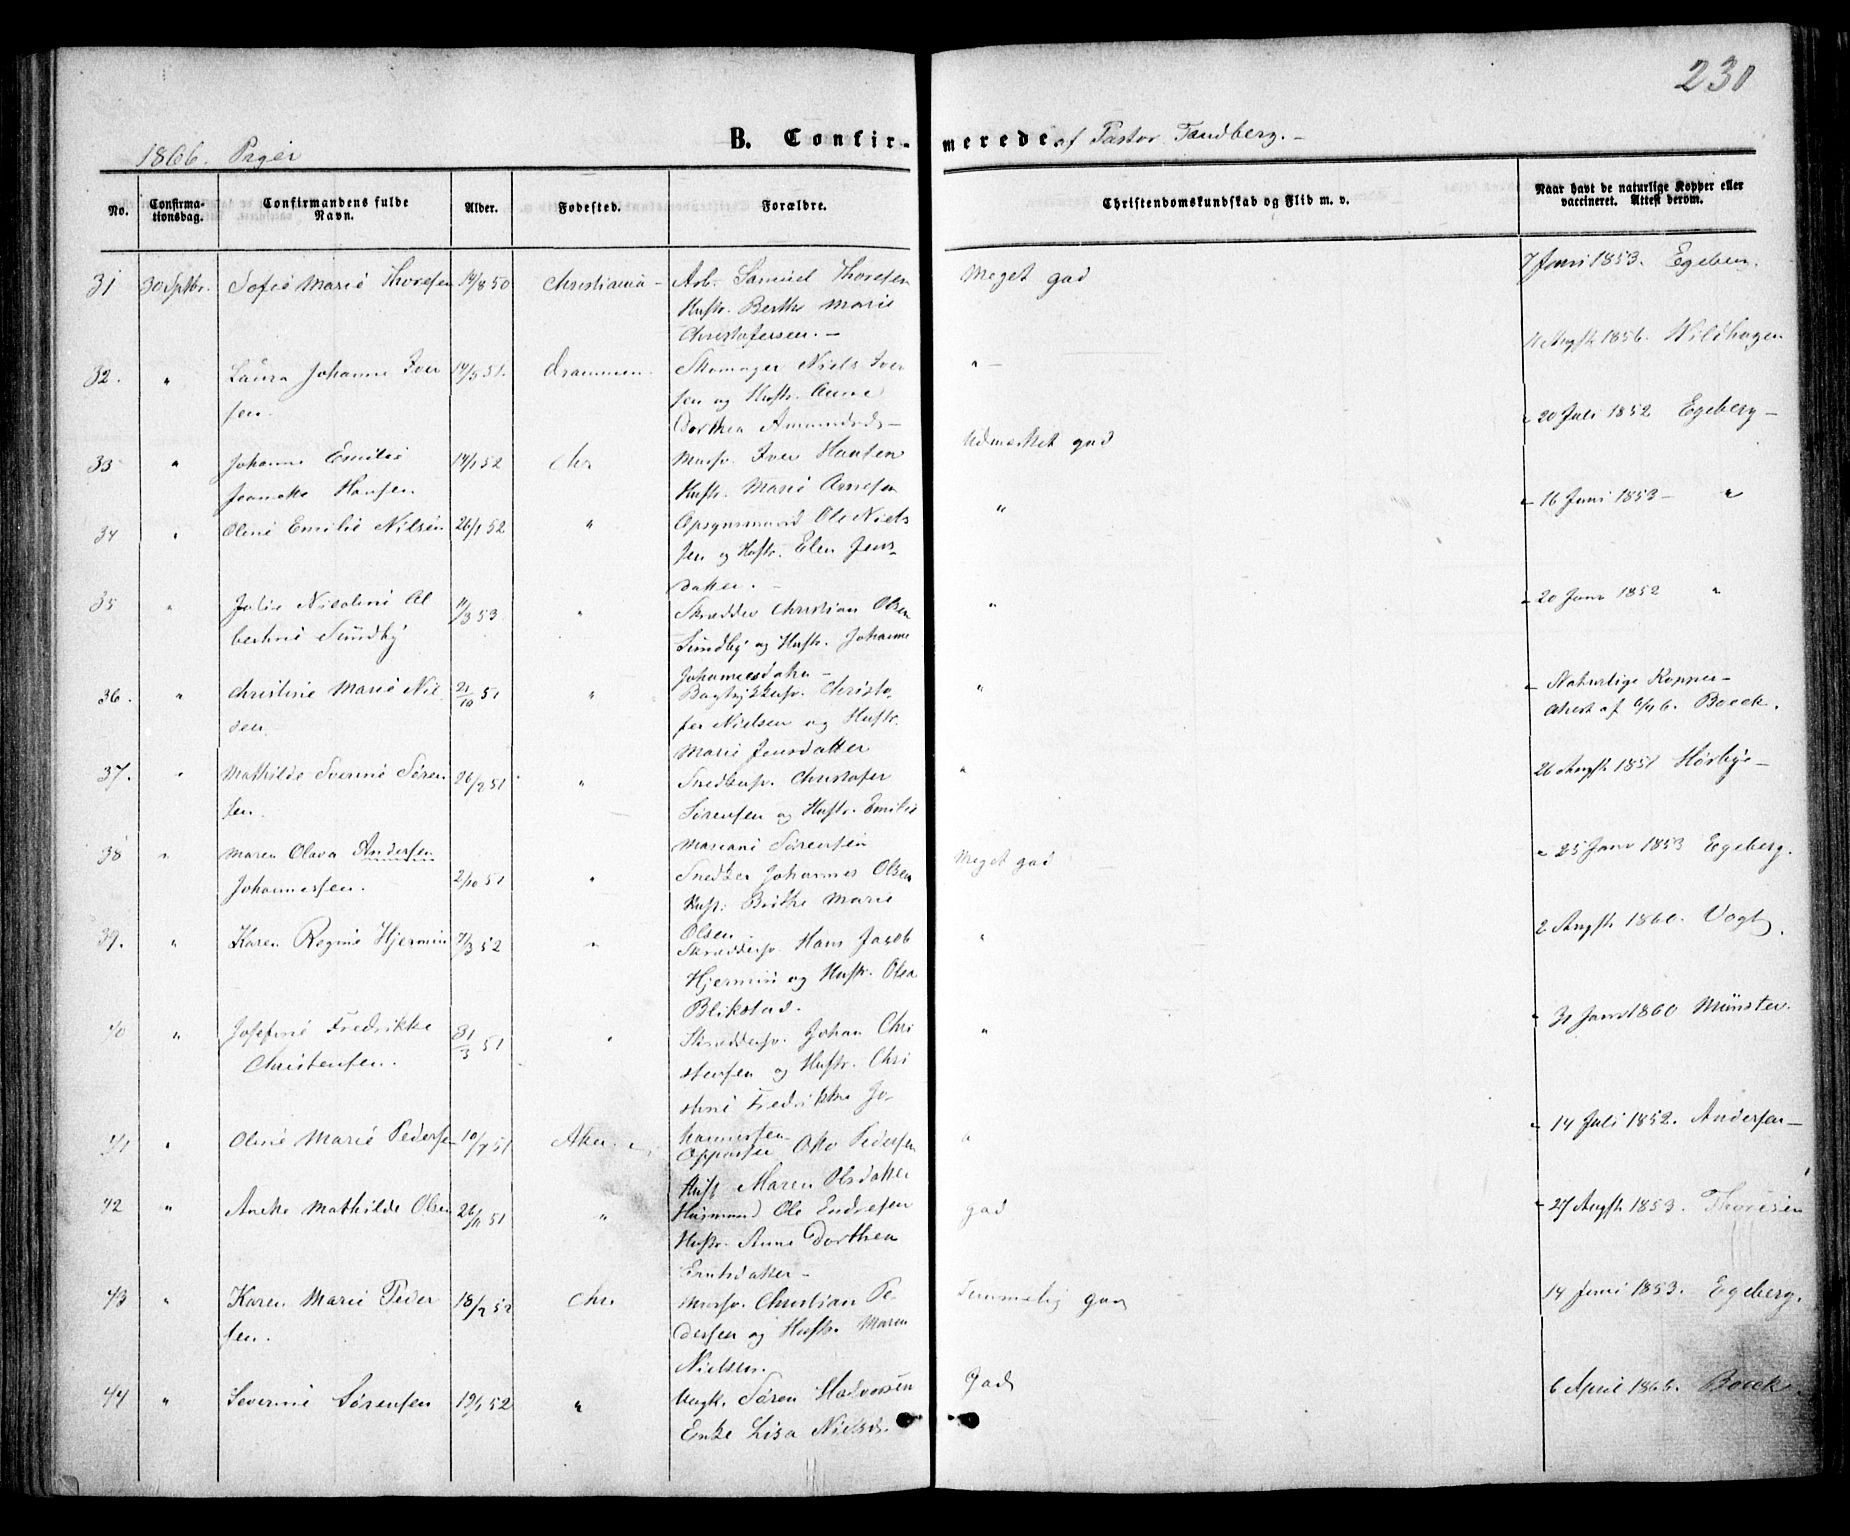 230
1866. Piger
B. Confirmerede af Pastor Tandberg. —
No.
Confirmationsdag.
Confirmandens fulde Navn.
Alder.
Fødested.
Forældre.
Christendomskundskab og Flid m. v.
Naar havt de naturlige Kopper eller vaccineret. Attest derom.
31 30 Sptbr. Sofie Marie Thoresen 14/8 50 Christiania - Arb. Samuel Thoresen Meget god 7 Juni 1853. Egeberg.
Hustr. Berthe Marie
Christofersen. —
32. " Laura Johanne Iver 14/5 51. Drammen. Skomager Niels Iver " — 11 Augst 1856. Wildhagen
sen. sen og Hustr. Anne
Dorthea Amundsd. —
33 " Johanne Emilie 14/1 52 Chr Mursv. Iver Hansen Udmærket god " 20 Juli 1852 Egeberg —
Jeanette Hansen. Hustr. Marie Arnesen
34 " Oline Emilie Nilsen 26/1 52 " Opsynsmand Ole Niels " " 16 Juni 1853 — "
sen og Hustr. Elen Jens-
datter. —
35 " Julie Nicoline Al 11/3 53 " Skrædder Christian Olsen " " 20 Janr 1852 "
bertine Sundby Sundby og Hustr. Johanne
Johannesdatter —
36. " Christine Marie Nil 21/10 51 " Christo " " Naturlige Kopper —
sen fer Nielsen og Hustr. Attest af Boeck.
Marie Jensdatter
37. " Mathilde Sverine Sören 26/2 51 " Snedkersv. Christofer " 26 Augst 1851 Hörbye —
sen. Sörensen og Hustr. Emilie
Mariane Sörensen
38 " Maren Olava Andersen Meget god " 25 Janr 1853 Egeberg.
Johannessen. 2/10 51 " Snedker Johannes Olsen
Hust: Birthe Marie
Olsen.
39. " Karen Regine Hjermin 7/3 52 " Skræddersv. Hans Jacob " 2 Augst 1860. Vogt.
Hjermin og Hustr. Olea
Blikstad.
40 " Josefine Fredrikke 31/3 51 " Skræddersv. Johan Chri " " 31 Janr 1860 Münster.
Christensen. stensen og Hustr. Chri
stine Fredrikke Jo-
hannessen
41 " Oline Marie Pedersen 10/7 51 Aker Oppasser Otto Pedersen " " 14 Juli 1852. Andersen —
Hust Maren Olsdatter
42 " Anette Mathilde Olsen 26/11 51 " Husmand Ole Endresen god " 27 Augst 1853. Thoresen
Hustr. Anne Dorthea
Erntsdatter —
43 " Karen Marie Peder 18/2 52 Chr. Mursv. Christian Pe- Temmelig god 14 Juni 1853. Egeberg.
sen. dersen og Hustr. Maren
Nielsen.
44 " Severine Sörensen 19/1 52 " Ungk. Sören Halvorsen God 6 April 1866. Boeck.
Enke Lisa Nielsd.